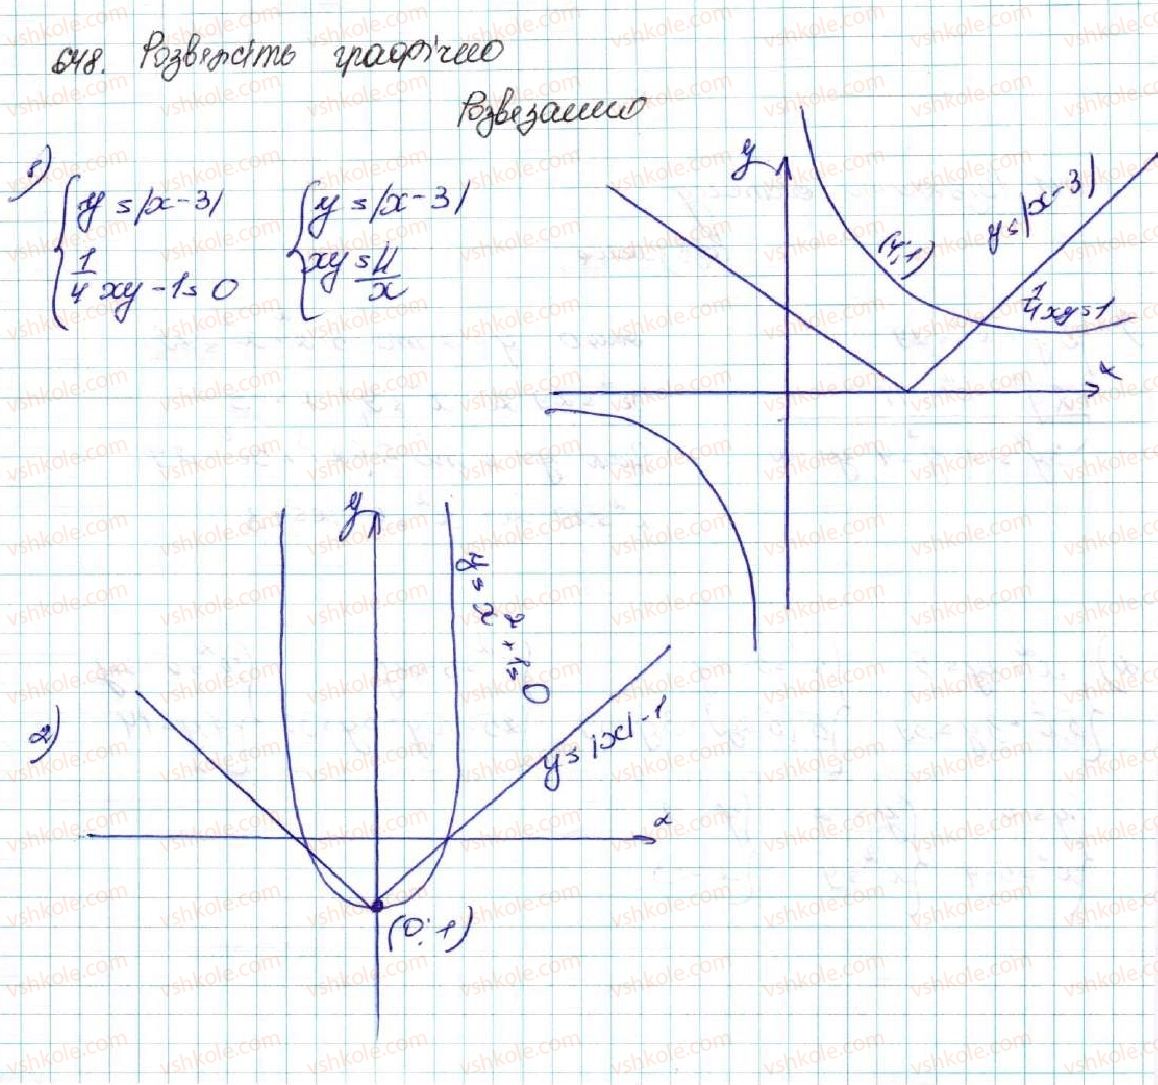 648. Розвежіть графічно
Розвезанно
1)
{ y = |x - 3|
{ 1/4 xy - 1 = 0
{ y = |x - 3|
{ xy = 4/x
y
(4; 1)
y = |x - 3|
1/4 xy = 1
x
2)
y
y = x² + 1 = 0
y = |x| - 1
x
(0; -1)
vshkole.com